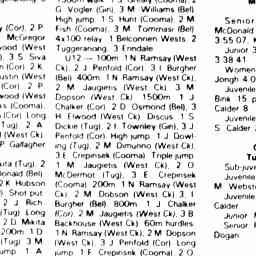 G Vogler (Gir), 3 M Williams (Bel)
High jump 1 S Hunt (Cooma) 2 M
Fish (Cooma), 3 M Tommasi (Bel)
4x100 relay 1 Belconnen Wests 2
Tuggeranong, 3 Erindale
U12 — 100m 1 N Ramsay (West
Ck), 2 J Penfold (Cor) 3 I Burgher
(Bel) 400m 1 N Ramsay (West Ck),
2 M Jaugietis (West Ck) 3 M
Dopson (West Ck) 1500m 1 J
Chalker (Cor) 2 D Osmond (Bel), 3
H Elwood (West Ck) Discus 1 S
Dickie (Tug), 2 I Townley (Gin), 3 J
Penfold (Cor) High jump 1 J Dowl
ing (Tug) 2 M Dimunno (West Ck),
3 E Crepinsek (Cooma) Triple jump
1 M Jaugietis (West Ck), 2 O
McDermot (Tug), 3 E Crepinsek
(Cooma) 200m 1 N Ramsay (West
Ck) 2 M Dobson (West Ck) 3 I
Burgher (Bel) 800m 1 J Chalker
(Cor), 2 M Jaugietis (West Ck), 3 B
Backhouse (West Ck) 60m hurdles
1 N Ramsay (West Ck), 2 M Dopson
(West Ck), 3 J Penfold (Cor) Long
jump 1 E Crepinsek (Cooma), 2 O
(Cor), 2 P
McGregor
wood (West
), 3 S Siva
(Cor) 2 K
ustin (West
(Cor) 2 P
wood (West
(Cooma)
(Cor) Long
(Tug), 2 A
(West Ck)
P Gallagher
(Tug) 2
Donald (Bel)
2 K Hobson
) Shot put
2 J Rich
(Tug) Long
2 D Makita
200m 1 D
(Tug) 3 M
jump 1 A
Senior
McDonald
3 55 07
Junior
3 38 41
Women
Jongh 4 0
Juvenile
Bink 15
Calder 8
Juvenile
S Calder
Sub-juv
Juvenile
M Webst
Juvenile
Calder
Junior
Senior
Dogan